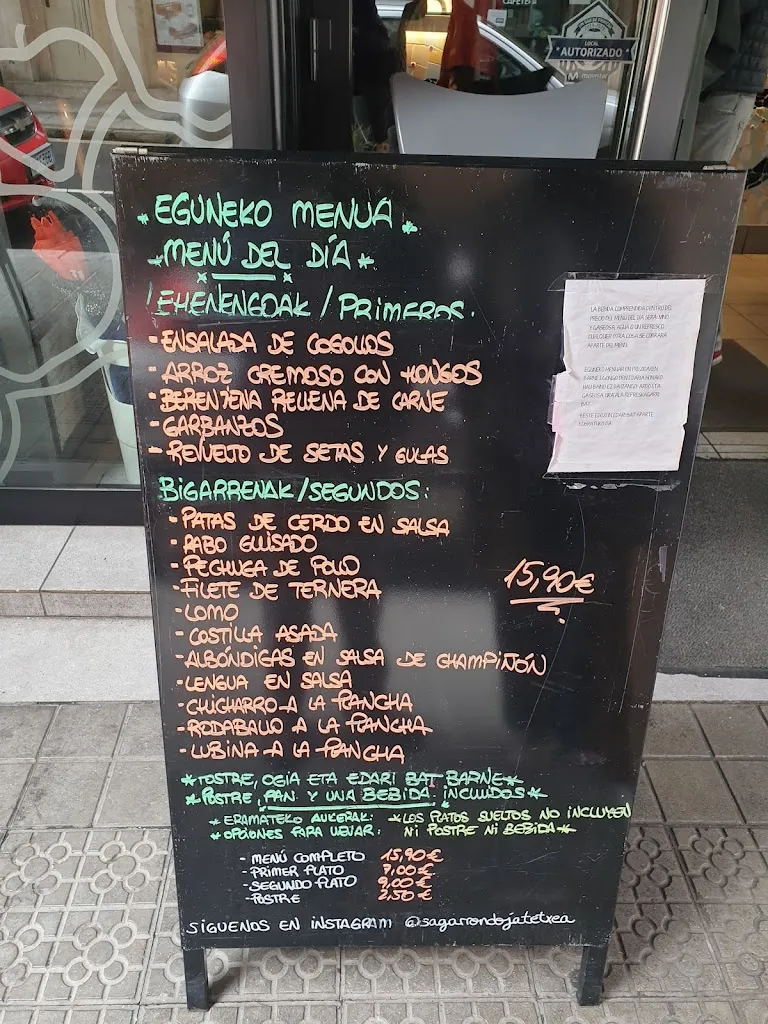 LOCAL
AUTORIZADO
movistar
EGUNEKO MENUA
MENÚ DEL DÍA
LEHENENGOAK / PRIMEROS:
- ENSALADA DE COGOLLOS
- ARROZ CREMOSO CON HONGOS
- BERENJENA RELLENA DE CARNE
- GARBANZOS
- REVUELTO DE SETAS Y GULAS
BIGARRENAK / SEGUNDOS:
- PATAS DE CERDO EN SALSA
- RABO GUISADO
- PECHUGA DE POLLO
- FILETE DE TERNERA
- LOMO
- COSTILLA ASADA
- ALBÓNDIGAS EN SALSA DE CHAMPIÑÓN
- LENGUA EN SALSA
- CHICHARRO A LA PLANCHA
- RODABALLO A LA PLANCHA
- LUBINA A LA PLANCHA
15,90€
LA BEBIDA COMPRENDIDA DENTRO DEL
PRECIO DEL MENÚ DEL DÍA SERÁ: VINO
Y GASEOSA, AGUA O UN REFRESCO.
CUALQUIER OTRA COSA SE COBRARÁ
APARTE DEL MENÚ.
* POSTRE, OGIA ETA EDARI BAT BARNE *
* POSTRE, PAN Y UNA BEBIDA INCLUIDOS *
* ERAMATEKO AUKERAK:
* OPCIONES PARA LLEVAR:
* LOS PLATOS SUELTOS NO INCLUYEN
NI POSTRE NI BEBIDA *
- MENÚ COMPLETO 15,90€
- PRIMER PLATO 7,00€
- SEGUNDO PLATO 9,00€
- POSTRE 2,50€
SIGUENOS EN INSTAGRAM @sagarrondojatetxea